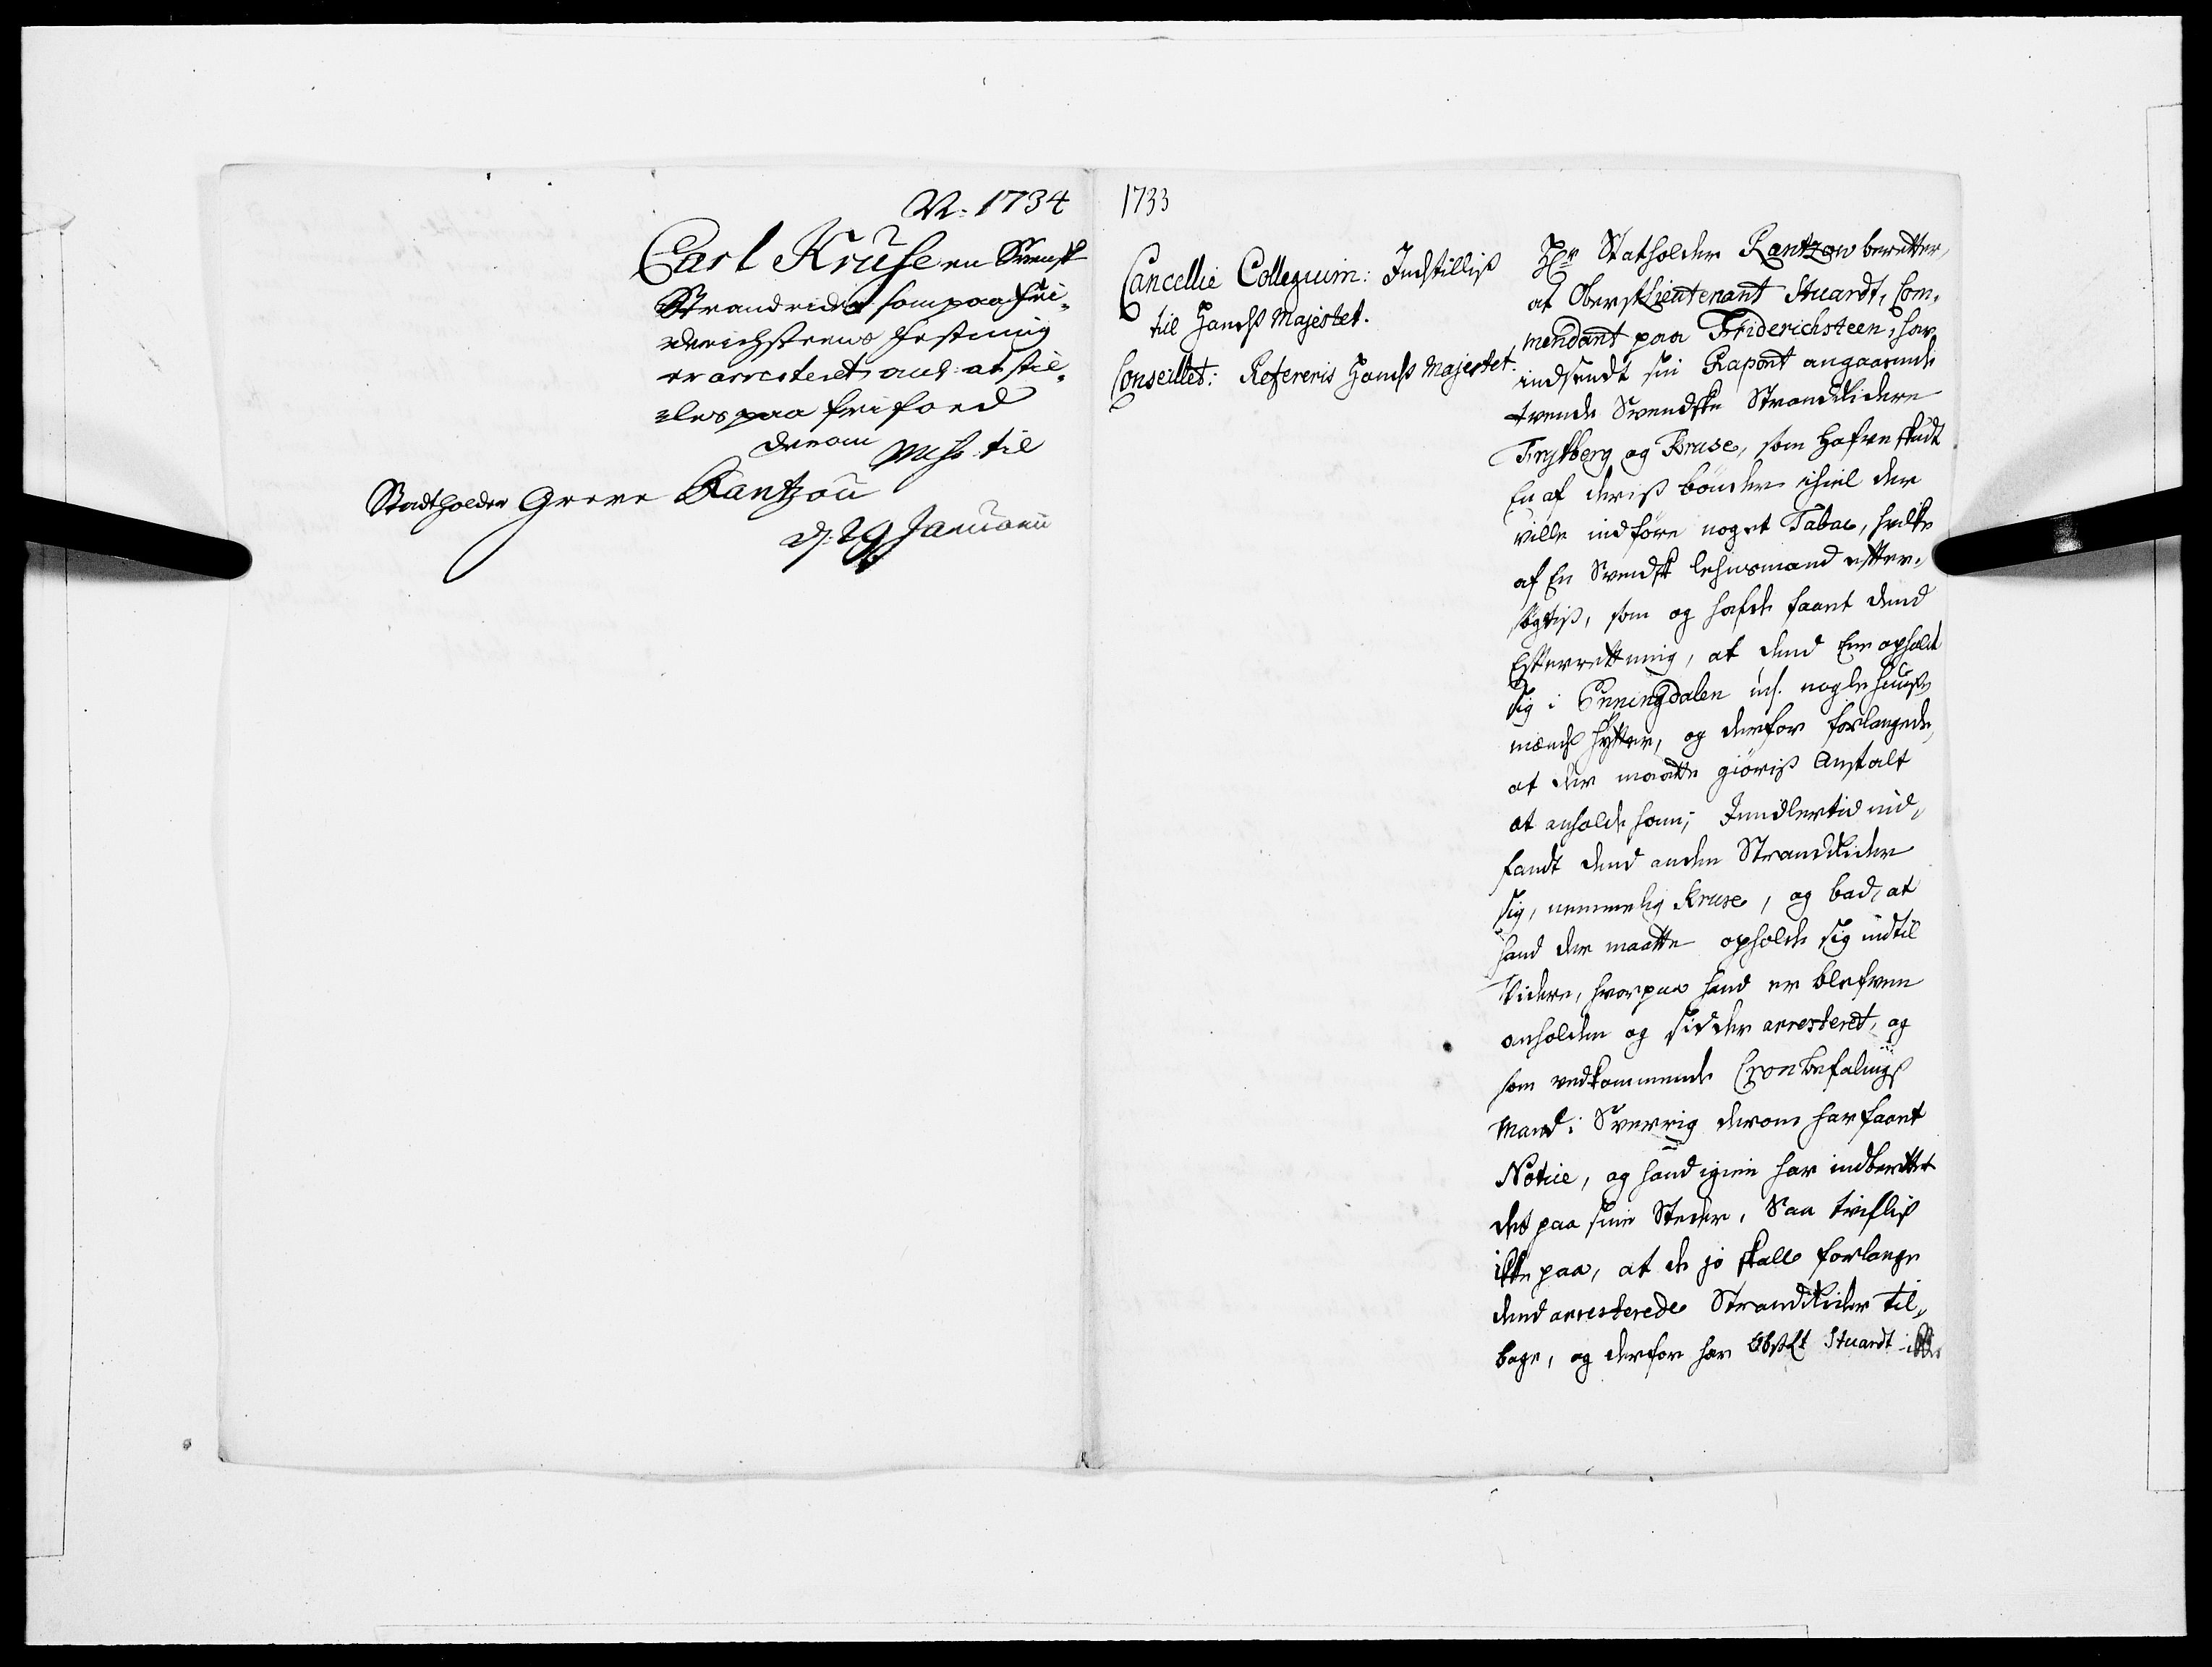 N: 1734
Carl Kruse en Svensk
Strandrider som paa Fri-
derichsteens Festning
er arresteret ang: at stil-
les paa fri foed
derom Miss: til
Stadtholder Greve Rantzou
d: 29 Januarii
1733
Cancellie Collegium: Indstillis
til Hands Majestet.
Conseillet: Refereris Hands Majestet.
Hr Statholder Rantzow beretter,
at OberstLieutenant Stuardt, Com-
mendant paa Friderichsteen, har
indsendt sin Raport angaaende
tvende Svendske Strandridere
Frystberg og Kruse, som hafve skudt
En af deris bönder ihiel der
ville indföre noget Tabac, hvilke
af En Svendsk lehnsmand efter-
sögtis, som og hafde faaet dend
Efterretning, at dend Ene opholdt
sig i Enningdalen ud. nogle huus-
mænds hytter, og derfor forlangede,
at der maatte giöris Anstalt
at anholde ham; Imidlertid ind-
fandt dend anden Strandrider
sig, nemmelig Kruse, og bad, at
hand der maatte opholde sig indtil
Videre, hvorpaa hand er blefven
anholden og sidder arresteret, og
som vedkommende Cron befalings
Mand i Sverrig derom har faaet
Notice, og hand igien har indberettet
det paa sine Steder, Saa tvifles
ikke paa, at de jo skall forlange
dend arresterede Strandrider til-
bage, og derfor har Obstlt Stuardt ikke